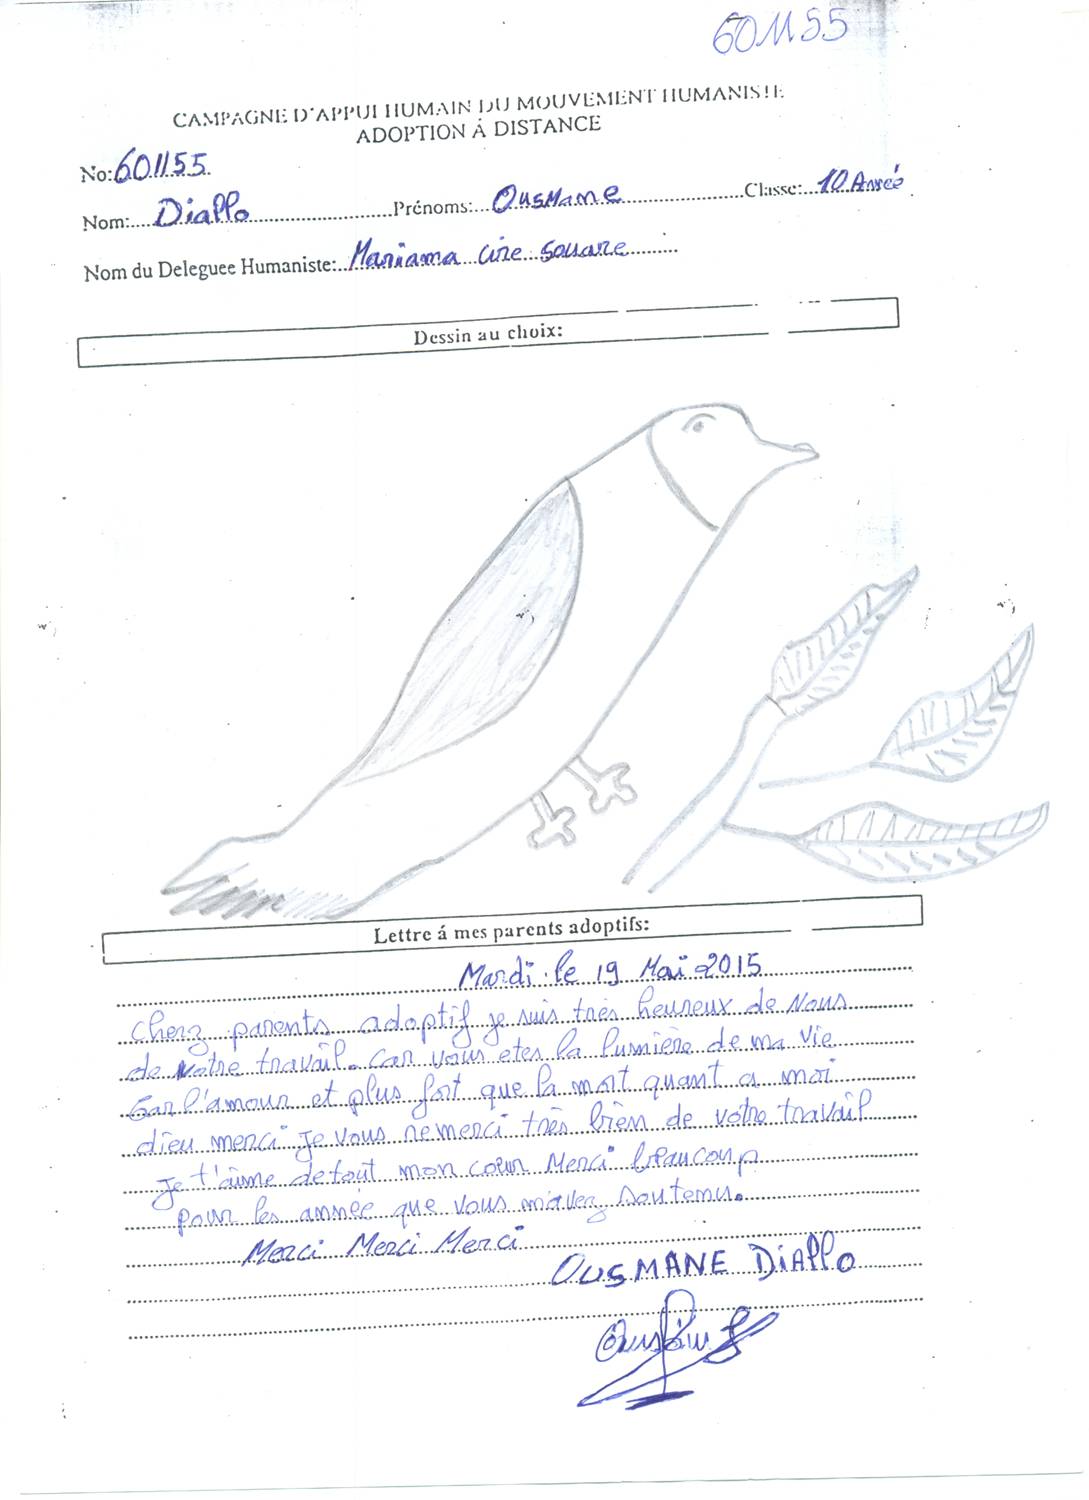 601155
CAMPAGNE D'APPUI HUMAIN DU MOUVEMENT HUMANISTE
ADOPTION Á DISTANCE
No:601155
Nom:....Diallo....Prénoms:...Ousmane....Classe:..10 Année
Nom du Deleguee Humaniste:..Mariama Cire Souare
Dessin au choix:
Lettre á mes parents adoptifs:
Mardi le 19 Mai 2015
Cherz parents adoptif je suis très heureux de Nous
de votre travail. Car vous etes la lumière de ma vie
Car l'amour et plus fort que la mort quant a moi
dieu merci je vous remerci très bien de votre travail
Je t'aime de tout mon coeur Merci beaucoup
pour les année que vous m'avez soutenu.
Merci Merci Merci
OUSMANE DiAllO